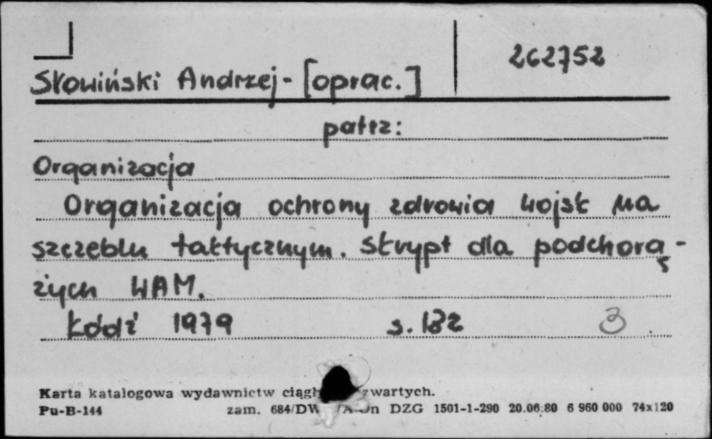 262752
Słowiński Andrzej - [oprac.]
patrz:
Organizacja
Organizacja ochrony zdrowia wojsk na
szczeblu taktycznym. Skrypt dla podchorą-
żych WAM.
Łódź 1979 s. 182 3
Karta katalogowa wydawnictw zwartych.
Pu-B-144 zam. 684/DW DZG 1501-1-290 20.06.80 6 960 000 74x120